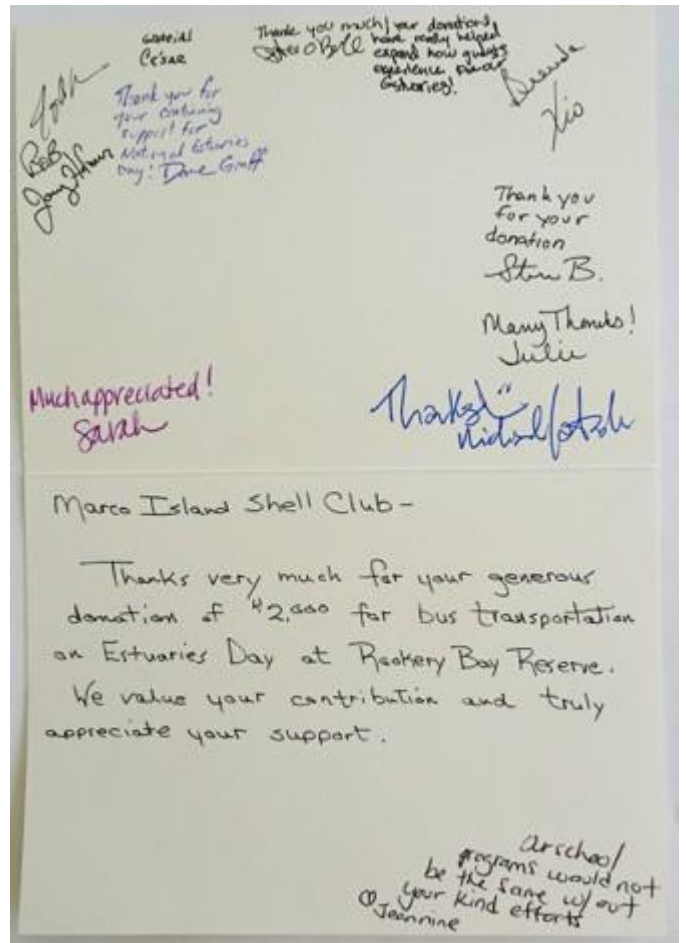 Cesar
Thank you much! your donations
have really helped
expand how guests
experience
Estuaries!
Brenda
Xio
Thank you for
your continuing
support for
National Estuaries
Day! Dave Graff
Bob
Thank you
for your
donation
Steve B.
Many Thanks!
Julie
Much appreciated!
Sarah
Thanks!
Marco Island Shell Club-
Thanks very much for your generous
donation of $2,000 for bus transportation
on Estuaries Day at Rookery Bay Reserve.
We value your contribution and truly
appreciate your support.
Our school
programs would not
be the same w/out
your kind efforts
Jeannine